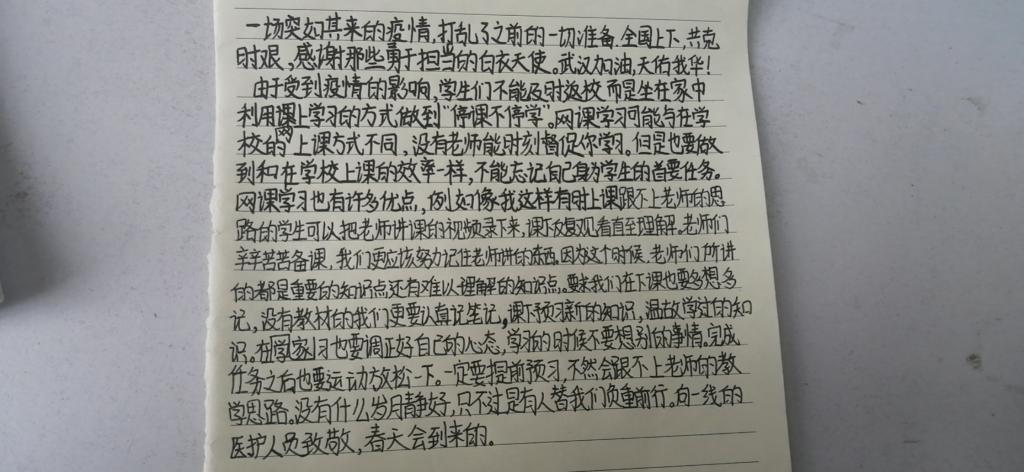 一场突如其来的疫情,打乱了之前的一切准备.全国上下,共克
时艰,感谢那些勇于担当的白衣天使。武汉加油,天佑我华!
由于受到疫情的影响,学生们不能及时返校而是坐在家中
利用课上学习的方式做到"停课不停学"。网课学习可能与在学
校的网上课方式不同,没有老师能时刻督促你学习。但是也要做
到和在学校上课的效率一样,不能忘记自己身为学生的首要任务。
网课学习也有许多优点,例如像我这样有时上课跟不上老师的思
路的学生可以把老师讲课的视频录下来,课下反复观看直至理解。老师们
辛辛苦苦备课,我们更应该努力记住老师讲的东西.因为这个时候,老师们所讲
的都是重要的知识点还有难以理解的知识点。要求我们在下课也要多想多
记,没有教材的我们更要认真记笔记,课下预习新的知识,温故学过的知
识。在家学习也要调正好自己的心态,学习的时候不要想别的事情。完成
任务之后也要运动放松一下。一定要提前预习,不然会跟不上老师的教
学思路。没有什么岁月静好,只不过是有人替我们负重前行。向一线的
医护人员致敬,春天会到来的。